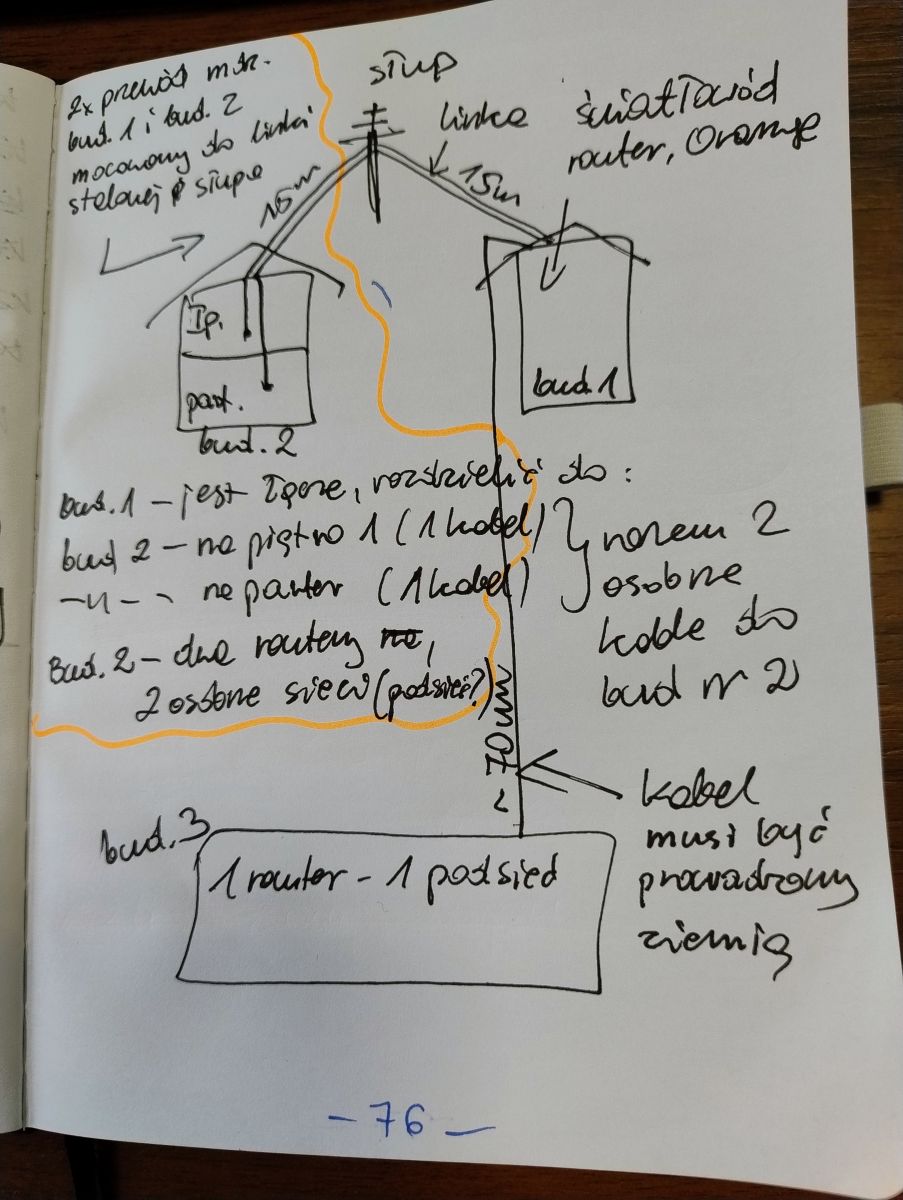 2x przewód
bud. 1 i bud. 2
mocowany do linki
stalowej słupa
słup
linka
światłowód
router, Orange
15m
15m
Ip.
part.
bud. 2
bud. 1
bud. 1 – jest łącze, rozdzielić do:
bud 2 – na piętro 1 (1 kabel)
–"– – na parter (1 kabel)
razem 2
osobne
kable do
bud nr 2
Bud. 2 – dwa routery,
2 osobne sieci (podsieć?)
~ 70m
kabel
musi być
prowadzony
ziemią
bud. 3
1 router – 1 podsieć
– 76 –